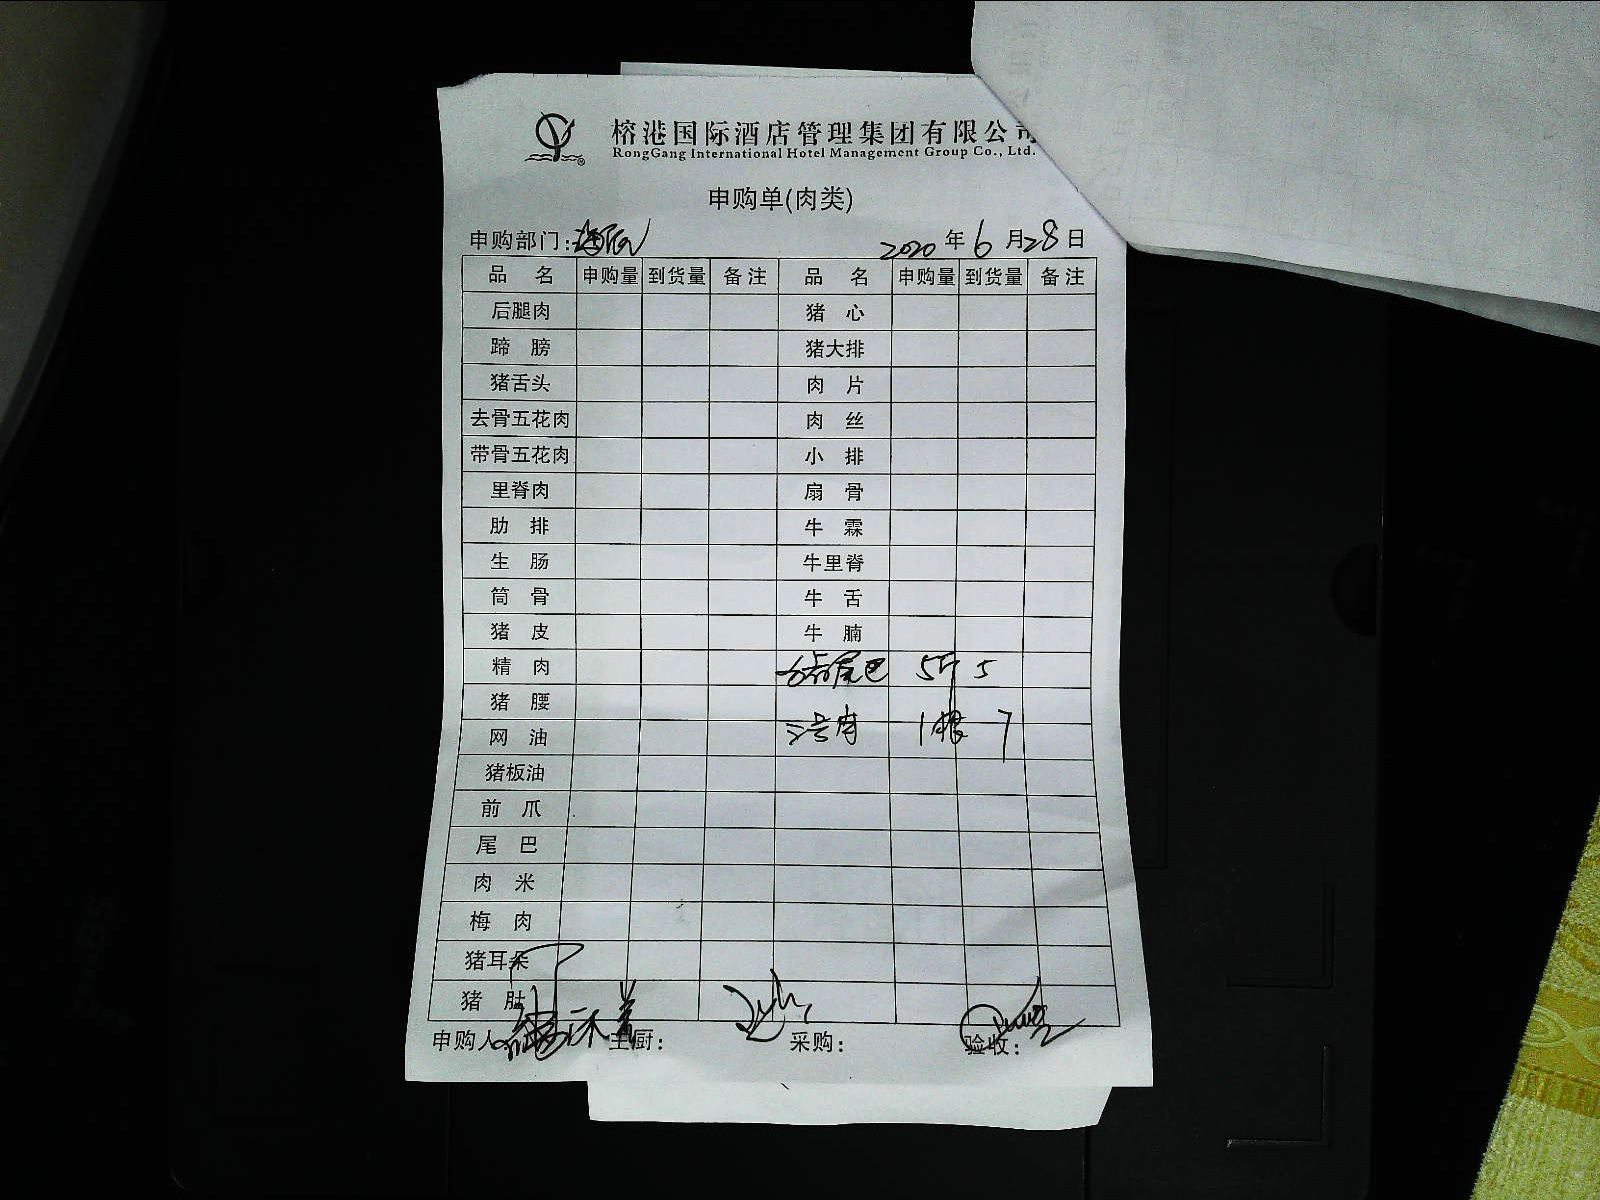 榕港国际酒店管理集团有限公司
RongGang International Hotel Management Group Co., Ltd.
申购单(肉类)
申购部门: 2020 年 6 月 28 日
品 名 申购量 到货量 备注 品 名 申购量 到货量 备注
后腿肉 猪 心
蹄 膀 猪大排
猪舌头 肉 片
去骨五花肉 肉 丝
带骨五花肉 小 排
里脊肉 扇 骨
肋 排 牛 霖
生 肠 牛里脊
筒 骨 牛 舌
猪 皮 牛 腩
精 肉 猪尾巴 5斤 5
猪 腰
网 油 三号肉 1根 7
猪板油
前 爪
尾 巴
肉 米
梅 肉
猪耳朵
猪 肚
申购人 主厨: 采购: 验收: